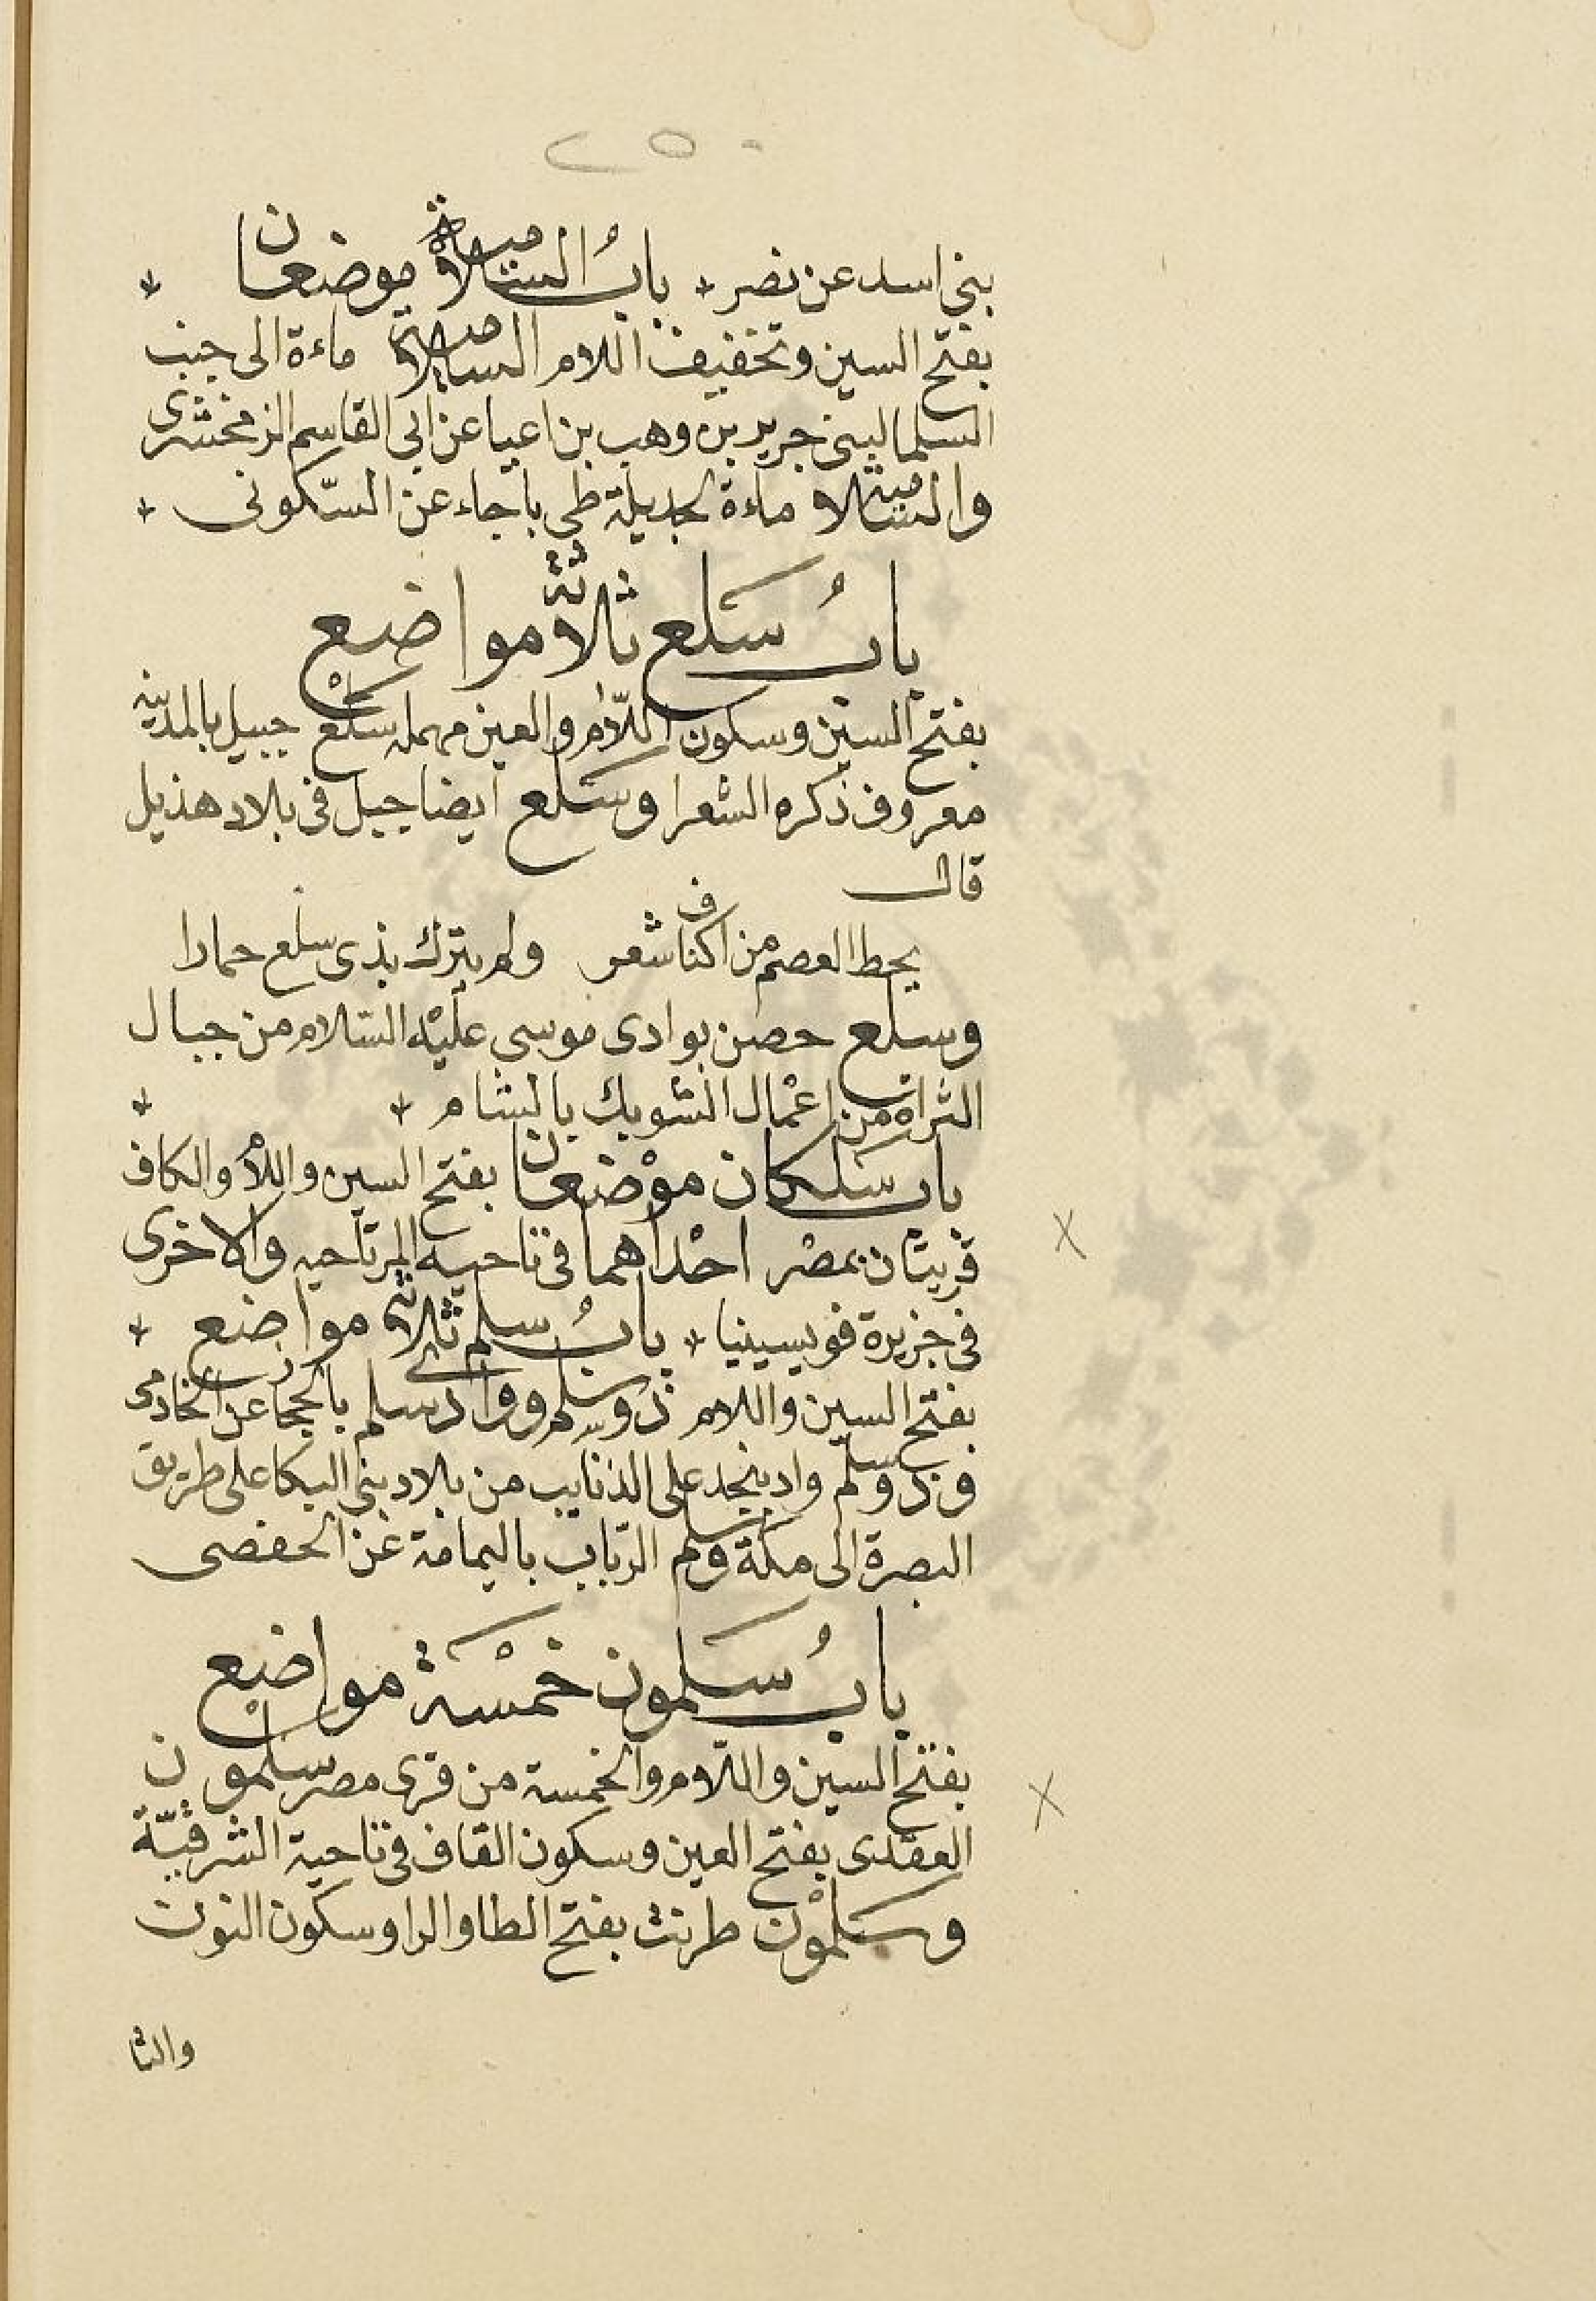 ٢٥٠
بنى اسد عن نصر * بابُ السلامية موضعان *
بفتح السين وتخفيف اللام السلامية ماءة الى جنب
السلما لبنى جرير بن وهب بن اعيا عن ابى القاسم الزمخشرى
والسلامية ماءة لجديلة طى باجاء عن السّكونى *
بابُ سَلع ثلاثة مواضع
بفتح السين وسكون اللّام والعين مهمله سَلْع جبيل بالمدينه
معروف ذكره الشعرا وسَلع ايضا جبل فى بلاد هذيل
قال
يحط العصم من اكناف شعر ولم يترك بذى سلع حمارا
وسلع حصن بوادى موسى عليْه السّلام من جبال
الشراه من اعْمال الشوبك بالشام * *
باب سَلَكان موْضعان بفتح السين واللام والكاف
قريتان بمصْر احْداهما فى ناحيه المرتاحيه والاخرى
فى جزيرة قويسينيا * بابُ سلم ثلاثة مواضع *
بفتح السين واللام ذو سلم ووادى سلم بالحجاز عن الحازمى
وذو سلم واد بنجد على الذنايب من بلاد بنى البكا على طريق
البصرة الى مكة وسلم الرّباب باليمامة عن الحفصى
بابُ سَلمون خمْسَة مواضع
بفتح السين واللّام والخمسة من قرى مصر سَلمون
العقدى بفتح العين وسكون القاف فى ناحية الشرقيّة
وسَلمْون طرنث بفتح الطا والرا وسكون النون
والثا